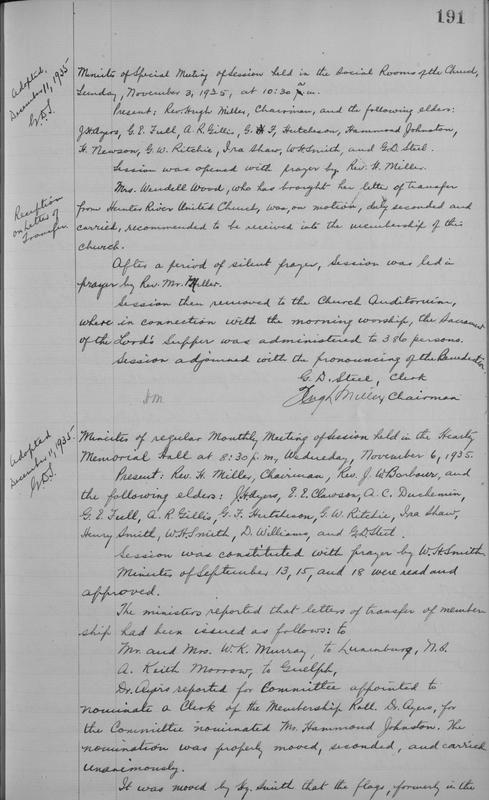 191
Adopted,
December 11, 1935
G.D.S.
Minutes of Special Meeting of Session held in the Social Rooms of the Church,
Sunday, November 3, 1935, at 10:30 a.m.
Present: Rev. Hugh Miller, Chairman, and the following elders:
J. H. Ayers, G. E. Full, A. R. Gillis, G. F. Hutcheson, Hammond Johnston,
H. Newson, G. W. Ritchie, Ira Shaw, W. H. Smith, and G. D. Steel.
Session was opened with prayer by Rev. H. Miller.
Reception
on Letters of
Transfer
Mrs. Wendell Wood, who has brought her letter of transfer
from Hunter River United Church, was, on motion, duly seconded and
carried, recommended to be received into the membership of this
church.
After a period of silent prayer, Session was led in
prayer by Rev. Mr. Miller.
Session then removed to the Church Auditorium,
where in connection with the morning worship, the Sacrament
of the Lord's Supper was administered to 386 persons.
Session adjourned with the pronouncing of the Benediction.
G. D. Steel, Clerk
HM
Hugh Miller, Chairman
Adopted
December 11, 1935.
G.D.S.
Minutes of regular Monthly Meeting of Session held in the Heartz
Memorial Hall at 8:30 p.m., Wednesday, November 6, 1935.
Present: Rev. H. Miller, Chairman, Rev. J. W. Barbour, and
the following elders: J. H. Ayers, E. E. Clawson, A. C. Duchemin,
G. E. Full, A. R. Gillis, G. F. Hutcheson, G. W. Ritchie, Ira Shaw,
Henry Smith, W. H. Smith, D. Williams, and G. D. Steel.
Session was constituted with prayer by W. H. Smith
Minutes of September 13, 15, and 18 were read and
approved.
The ministers reported that letters of transfer of member
ship had been issued as follows: to
Mr. and Mrs. W. K. Murray, to Lunenburg, N.S.
A. Keith Morrow, to Guelph,
Dr. Ayers reported for Committee appointed to
nominate a Clerk of the Membership Roll. Dr. Ayers, for
the Committee nominated Mr. Hammond Johnston. The
nomination was properly moved, seconded, and carried
unanimously.
It was moved by Hy. Smith that the flags, formerly in the